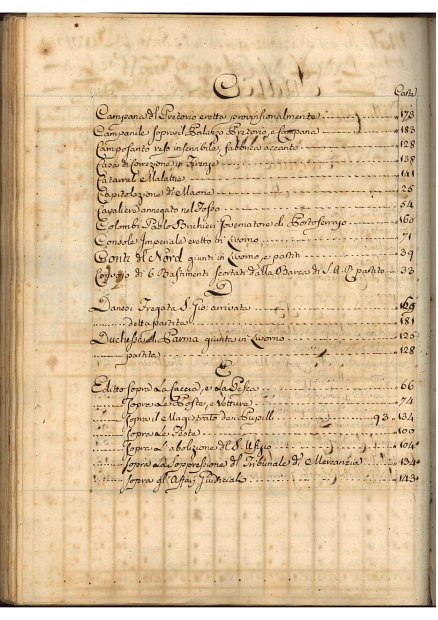 C
Carte
Campana del Pretorio eretta provisionalmente 173
Campanile sopra il Palazzo Pretorio, e Campana 183
Camposanto reso inservibile, fabbrica accanto 128
Casa di correzione in Firenze 138
Catarrel Malattia 141
Capitolazione di Maone 25
Cavaliere annegato nel Fosso 54
Colombi Paolo Governatore di Portoferraio 160
Console Imperiale eretto in Livorno 71
Conti del Nord giunti in Livorno e partiti 39
Convoio di 6 Bastimenti scortati dalla Barca di S.A.R. partito 33
D
Danesi Fregata S. Gio: arrivata 169
detta partita 181
Duchessa di Parma giunta in Livorno 125
partita 128
E
Editto sopra La Caccia, e La Pesca 66
sopra Le Poste, e Vetture 74
sopra il Magistrato dei Pupilli 93. 134
sopra Le Feste 100
sopra L'abolizione del S. Ufizio 104
sopra La Soppressione del Tribunale di Mercanzia 134
sopra gl'Affari Giudiciali 143